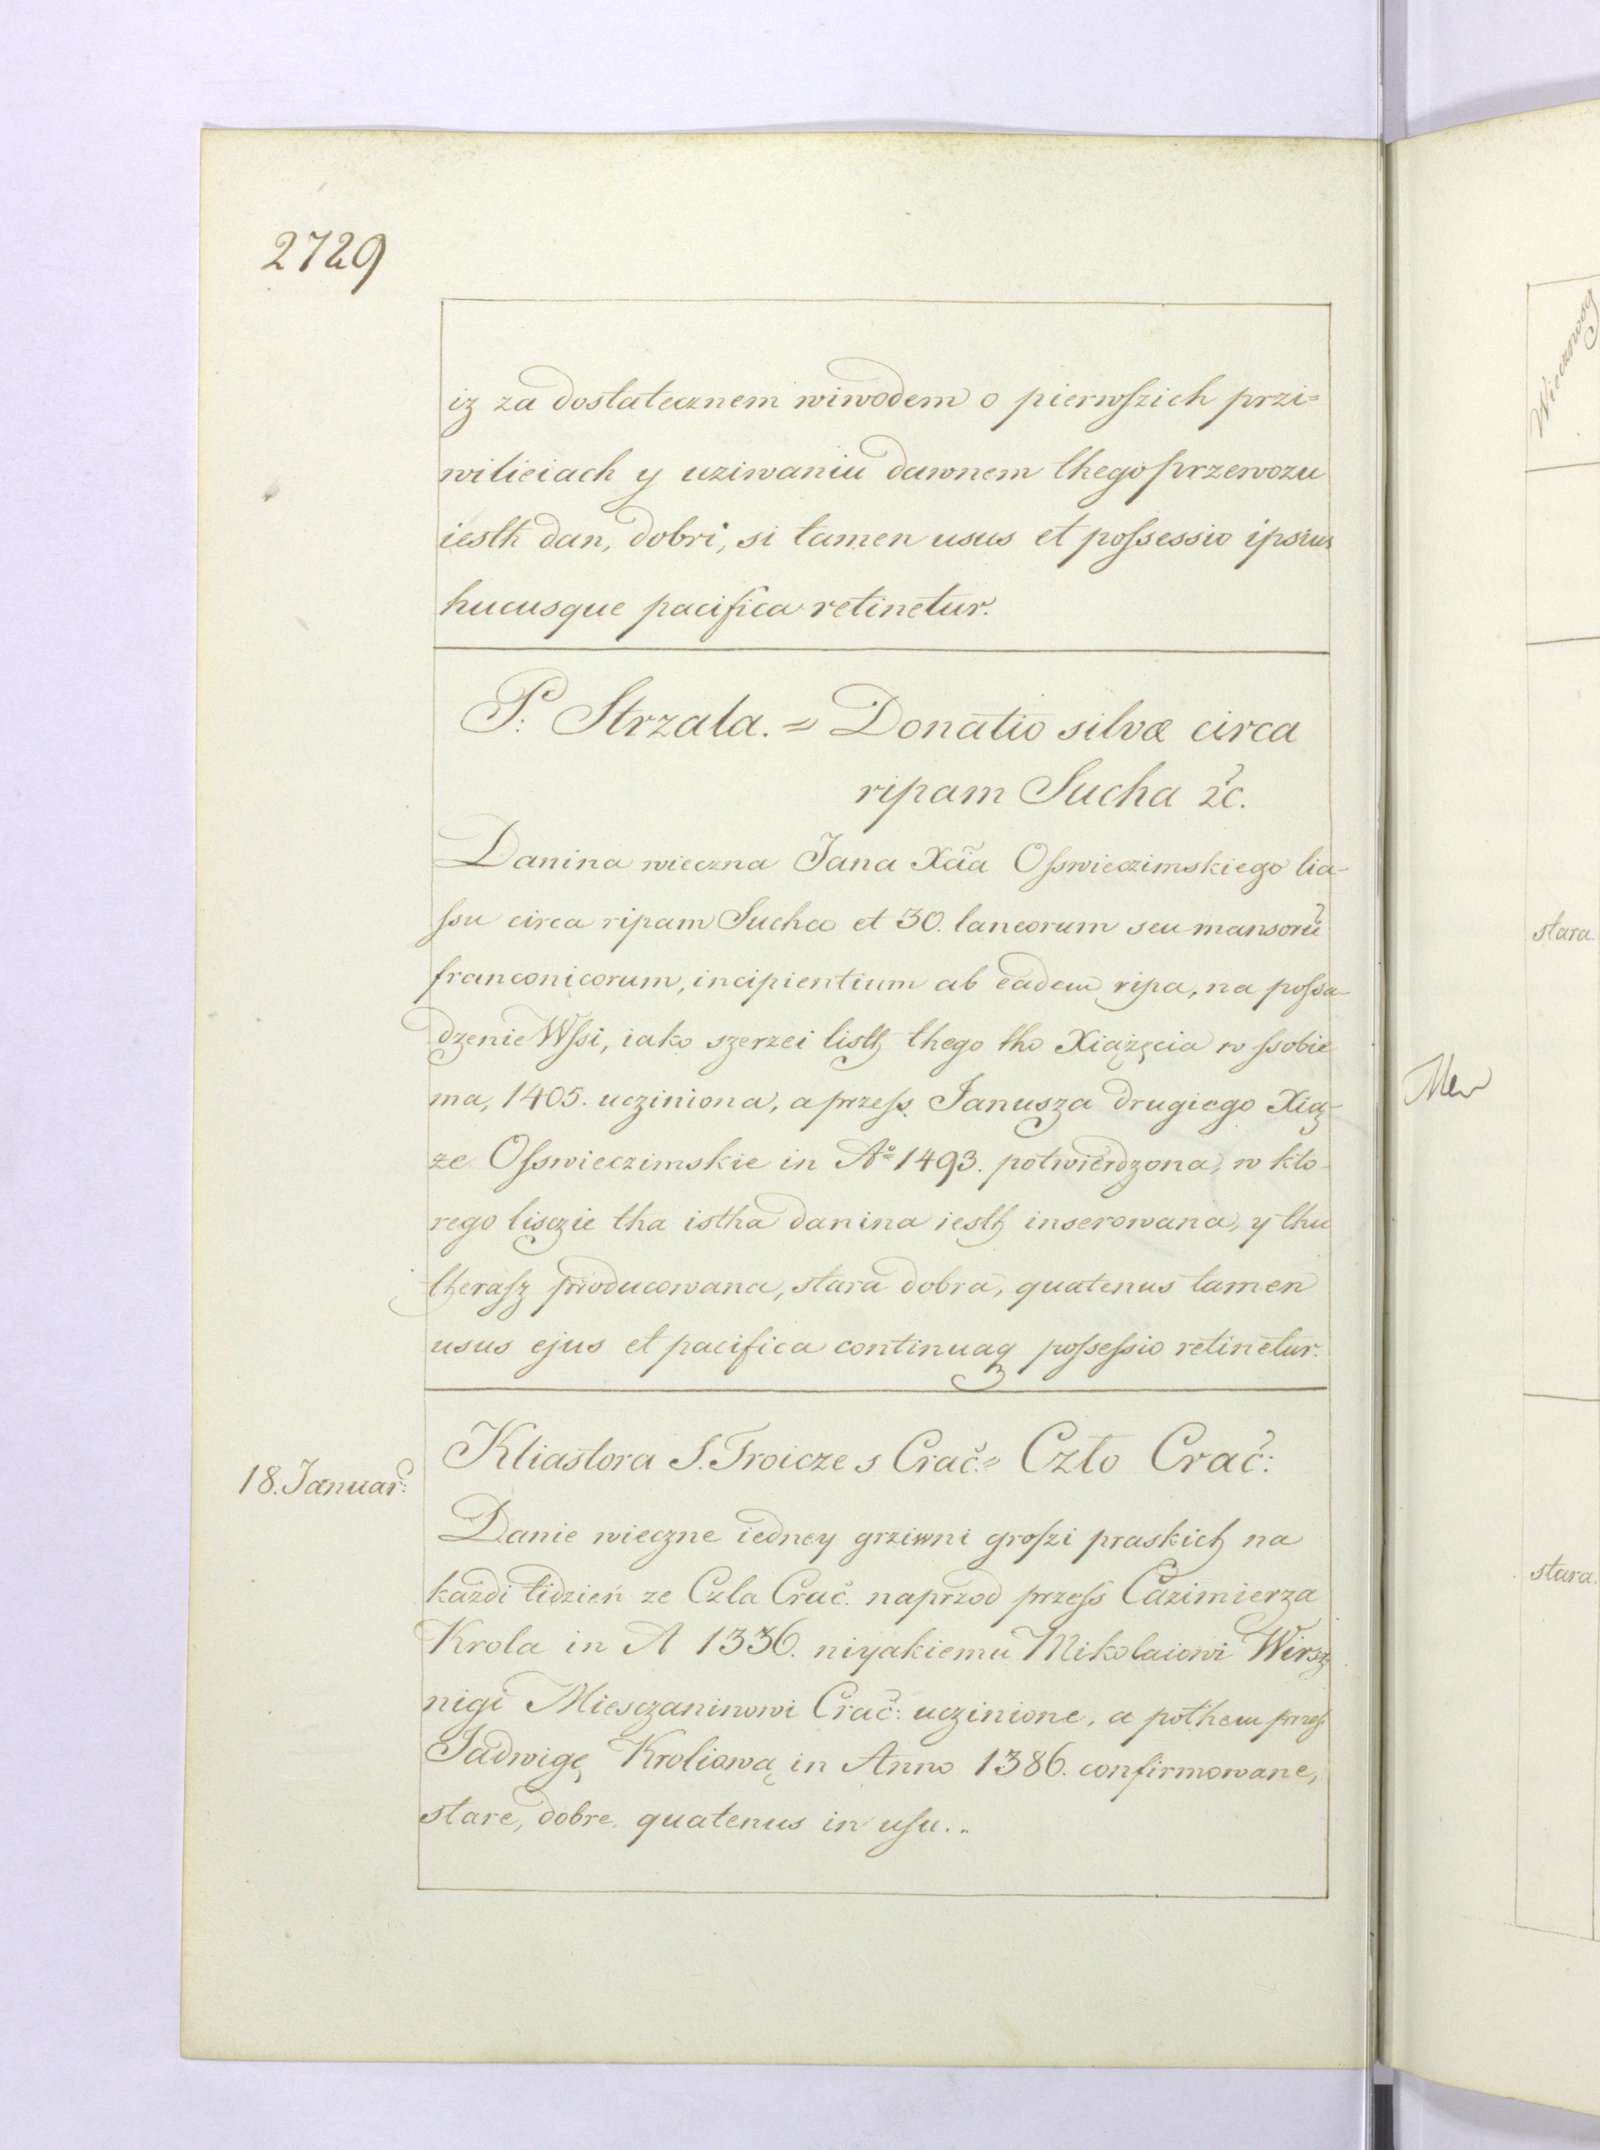 2729
iz za dostatecznem wiwodem o pierwſzich przi=
wilieiach y uziwaniu dawnem thego przewozu
iesth dan, dobri, si tamen usus et poſsessio ipsius
hucusque pacifica retinetur.
P: Strzala. = Donatio silvæ circa
ripam Sucha &c.
Danina wieczna Jana Xcia Oſswieczimskiego lia-
ſsu circa ripam Sucha et 30. laneorum seu mansorũ
franconicorum, incipientium ab eadem ripa, na poſsa-
dzenie Wſsi, iako szerzei listh thego tho Xiążęcia w ſsobie
ma, 1405. ucziniona, a przeſs Janusza drugiego Xią-
ze Oſswieczimskie in Aº 1493. potwierdzona, w kto-
rego lisczie tha istha danina iesth inserowana, y thu
theraſz producowana, stara dobra, quatenus tamen
usus ejus et pacifica continuaq poſseſsio retinetur.
18. Januar:
Kliastora S. Troicze s Crac. = Czło Crac:
Danie wieczne iedney grziwni groſzi praskich na
każdi tidzień ze Czla Crac. naprzod przeſs Cazimierza
Krola in A 1336. niyakiemu Mikolaiowi Wirsz
nigi Miesczaninowi Crac: uczinione, a pothem przeſs
Jadwigę Kroliową in Anno 1386. confirmowane,
stare, dobre quatenus in uſu..
Wiecznosz
stara.
Mew
stara.